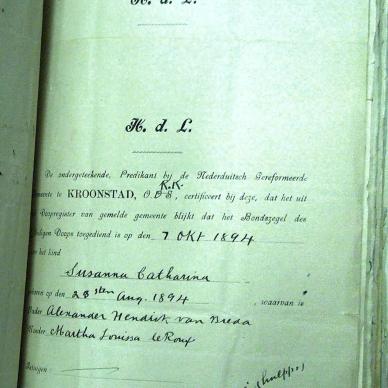 H. d. L.
H. d. L.
De ondergeteekende, Predikant bij de Nederduitsch Gereformeerde
R.K.
Gemeente te KROONSTAD, O.B.S., certificeert bij deze, dat het uit
Doopregister van gemelde gemeente blijkt dat het Bondszegel des
Heiligen Doops toegediend is op den 7 Okt 1894
aan het kind
Susanna Catharina
geboren op den 28sten Aug. 1894, waarvan is
Vader Alexander Hendrik van Breda
Moeder Martha Louisa le Roux
Getuigen